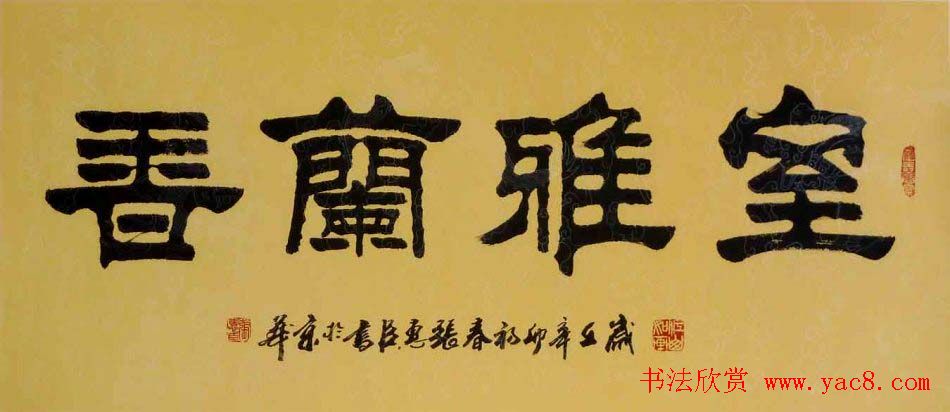 室雅蘭香
歲在辛卯初春張惠臣書於京華
书法欣赏 www.yac8.com